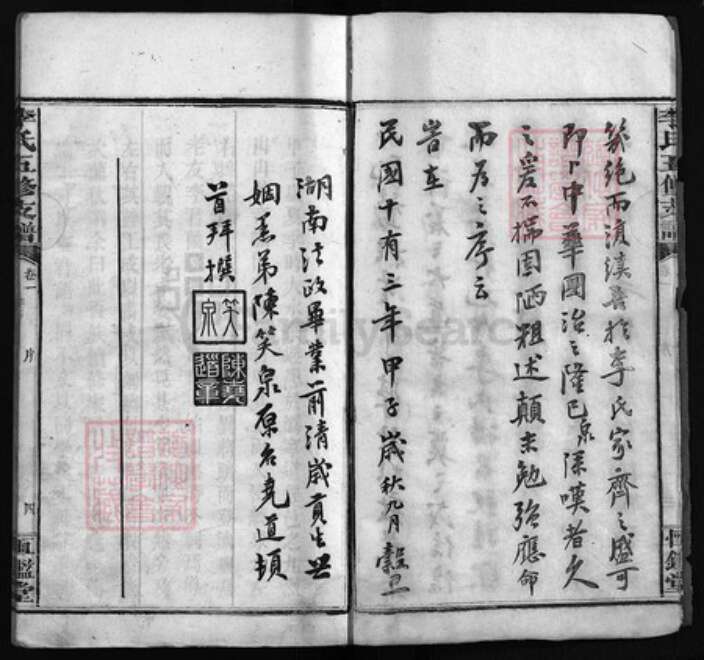 李氏五修支譜
幾絕而渙渙喜於李氏家齊之盛可
即卜中華國治之隆已泉深嘆者久
之爰不揣固陋粗述顛末勉強應命
而爲之序云
峕在
民國十有三年甲子歲秋九月穀旦
湖南法政畢業前清歲貢生世
姻愚弟陳笑泉原名堯道頓
首拜撰
笑泉
陳堯道章
李氏五修支譜
卷一
序
四
恒鑑堂
FamilySearch